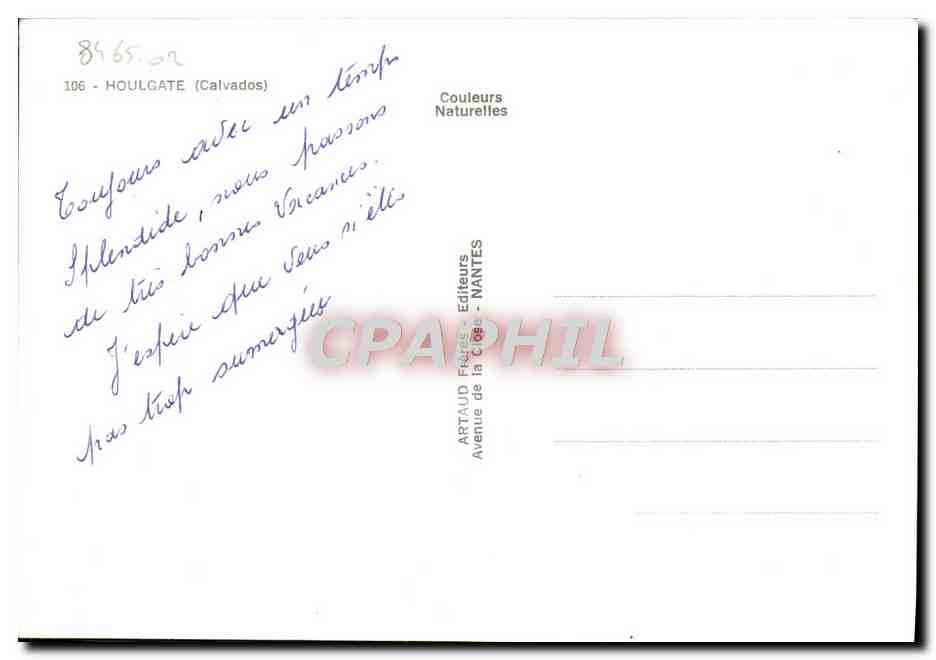 8465.02
106 - HOULGATE (Calvados)
Couleurs
Naturelles
Toujours avec un temps
Splendide, nous passons
de très bonnes Vacances.
J'espère que vous n'êtes
pas trop sumergées
ARTAUD Frères - Editeurs
Avenue de la Close - NANTES
CPAPHIL